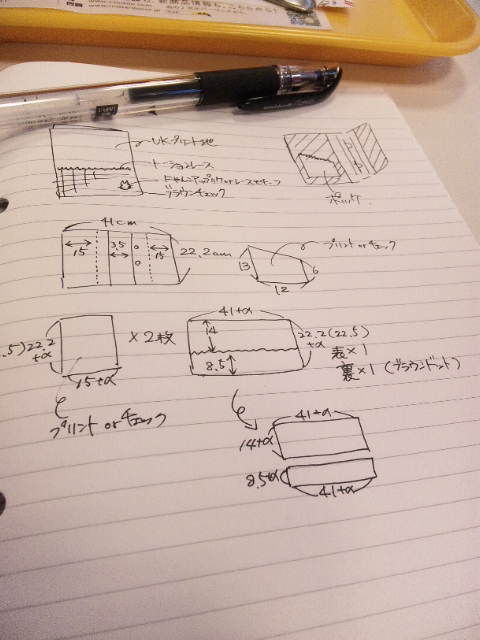 UKプリント地
トーションレース
にゃんこアップリケorレースモチーフ
ブラウンチェック
ポッケ
41cm
15
3.5
15
22.2cm
プリント or チェック
13
6
12
.5)22.2
+α
×2枚
15+α
プリント or チェック
41+α
14
8.5
22.2(22.5)
+α
表×1
裏×1(ブラウンドット)
41+α
14+α
8.5+α
41+α